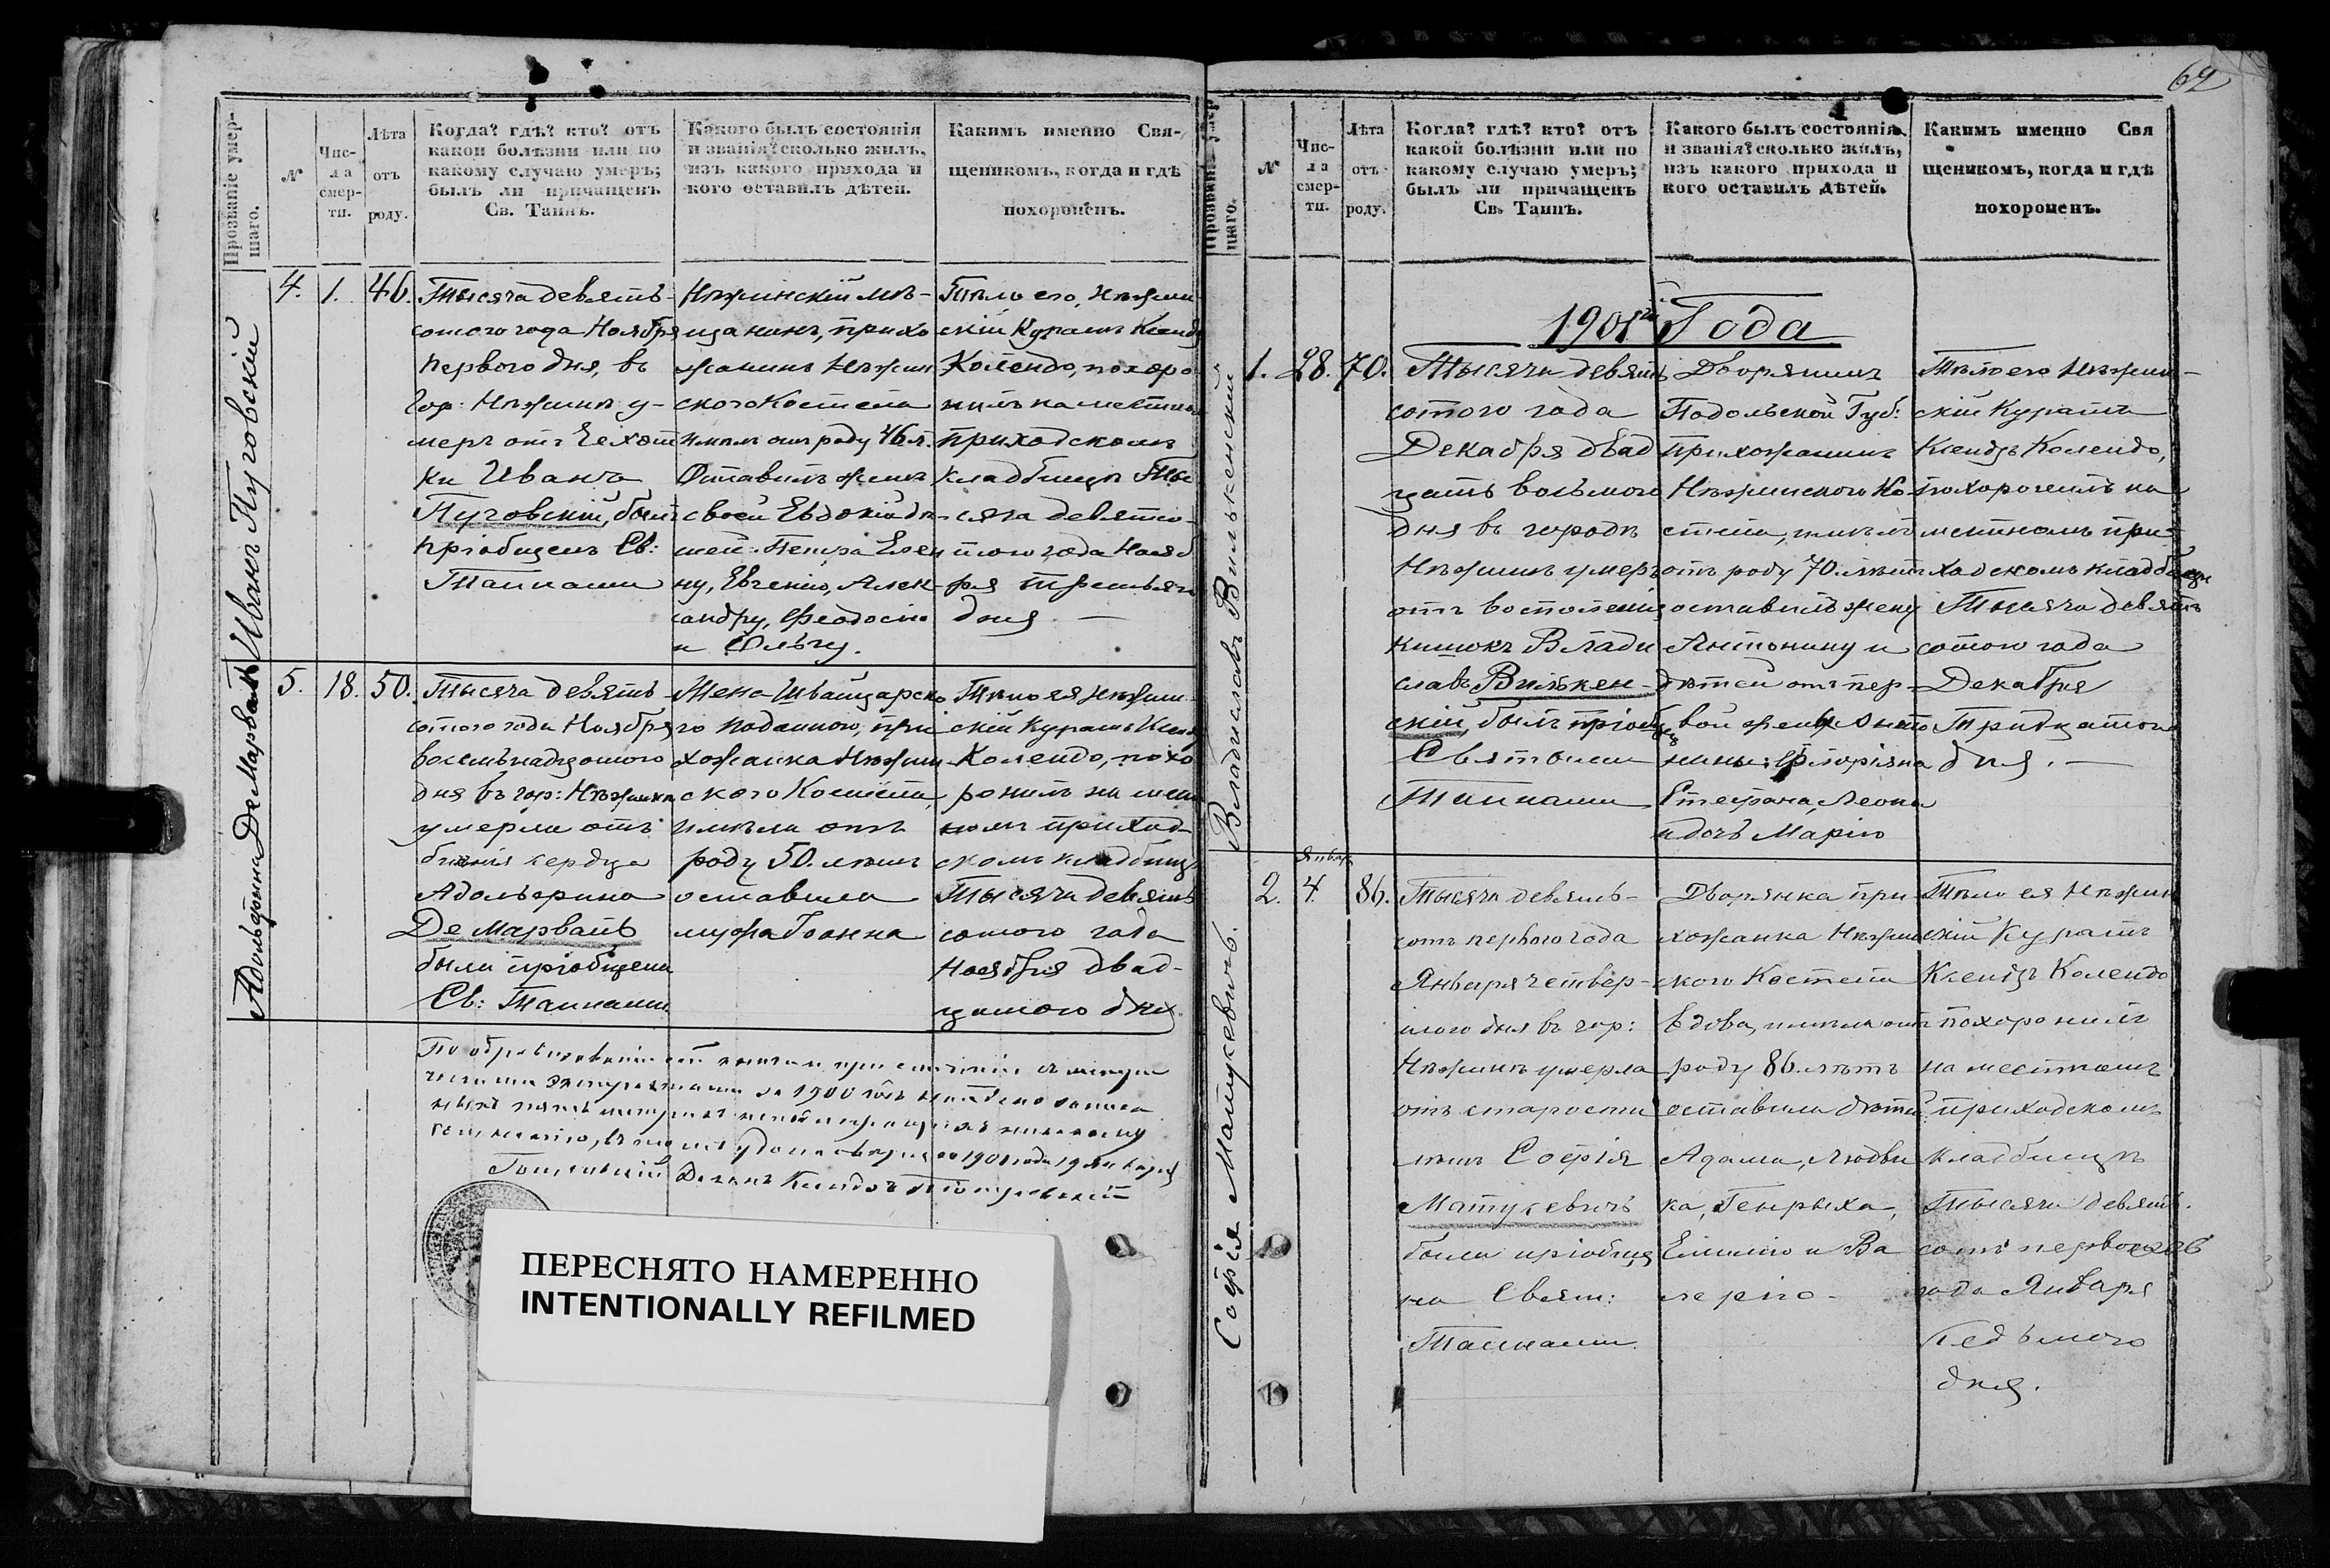 Прозваніе умер-
шаго.
№
Чис-
ла
смер-
ти.
Лѣта
отъ
роду.
Когда? гдѣ? кто? отъ
какой болѣзни или по
какому случаю умеръ;
былъ ли причащенъ
Св. Таинъ.
Какого былъ состоянія
и званія? сколько жилъ,
изъ какого прихода и
кого оставилъ дѣтей.
Какимъ именно Свя-
щенникомъ, когда и гдѣ
похороненъ.
Иванъ Пуговскій
4.
1.
46.
Тысяча девять-
сотого года Ноября
перваго дня, въ
гор: Нѣжинѣ у-
меръ отъ Чехот
ки Иванъ
Пуговскій, былъ
пріобщенъ Св:
Тайнами
Нѣжинскій мѣ-
щанинъ, прихо
жанинъ Нѣжин
скаго Костела
имѣлъ отъ роду 46 л.
Оставилъ жену
свою Евдокію дѣ-
тей: Петра Елен
ну, Евгенію, Алек-
сандру, Феодосію
и Ольгу.
Тѣло его, Нѣжин
скій Куратъ Ксендзъ
Колендо, похоро
нилъ на мѣстномъ
приходскомъ
кладбищѣ Тыс
сяча девято-
того года Нояб
ря третьяго
дня. —
Адольфина Де Марвалъ
5.
18.
50.
Тысяча девять-
сотого года Ноября
восемьнадцатого
дня въ гор: Нѣжинѣ
умерла отъ
біенія сердца
Адольфина
Де Марваль
была пріобщена
Св: Тайнами.
Жена Швайцарско
го поданного, при
хожанка Нѣжин
скаго Костела,
имѣла отъ
роду 50. лѣтъ
оставила
мужа Іоанна
Тѣло ея Нѣжин
скій Куратъ Ксендзъ
Колендо, похо
ронилъ на мѣст
номъ приход-
скомъ кладбищѣ
Тысяча девять
сотого года
Ноября двад-
цатого дня.
ПЕРЕСНЯТО НАМЕРЕННО
INTENTIONALLY REFILMED
62
Прозваніе умер
шаго.
№
Чис-
ла
смер-
ти.
Лѣта
отъ
роду.
Когда? гдѣ? кто? отъ
какой болѣзни или по
какому случаю умеръ;
былъ ли причащенъ
Св. Таинъ.
Какого былъ состоянія
и званія? сколько жилъ,
изъ какого прихода и
кого оставилъ дѣтей.
Какимъ именно Свя
щенникомъ, когда и гдѣ
похороненъ.
1901й Года
Владиславъ Вилькенскій
1.
28.
70.
Тысяча девять
сотого года
Декабря двад
цать восьмого
дня въ городѣ
Нѣжинѣ умеръ
отъ воспаленія
кишокъ Влади
славъ Вилькен-
скій, былъ пріобщ
Святыми
Тайнами
Дворянинъ
Подольской Губ:
прихожанинъ
Нѣжинского Ко
стела, имѣлъ
отъ роду 70. лѣтъ
оставилъ жену
Антонину и
дѣтей отъ пер-
вой жены Анто
нины: Флоріяна
Стефана, Леона
и дочь Марію
Тѣло его Нѣжин-
скій Куратъ
Ксендзъ Колендо,
похоронилъ на
мѣстномъ при-
ходскомъ кладбищѣ
Тысяча девять
сотого года
Декабря
Тридцатого
дня. —
Софія Матукевичъ.
2.
Январ
4.
86.
Тысяча девять-
сотъ перваго года
Января четвер-
того дня въ гор:
Нѣжинѣ умерла
отъ старости
лѣтъ Софія
Матукевичъ
была пріобще
на Свят:
Тайнами.
Дворянка при
хожанка Нѣжин
ского Костела
вдова, имѣла отъ
роду 86. лѣтъ
оставила дѣтей
Адама, Людви
ка, Генрыха,
Емилію и Ва
лерію.
Тѣло ея Нѣжин
скій Куратъ
Ксендзъ Колендо
похоронилъ
на мѣстномъ
приходскомъ
кладбищѣ
Тысяча девять-
сотъ первого
года Января
Седьмого
дня.